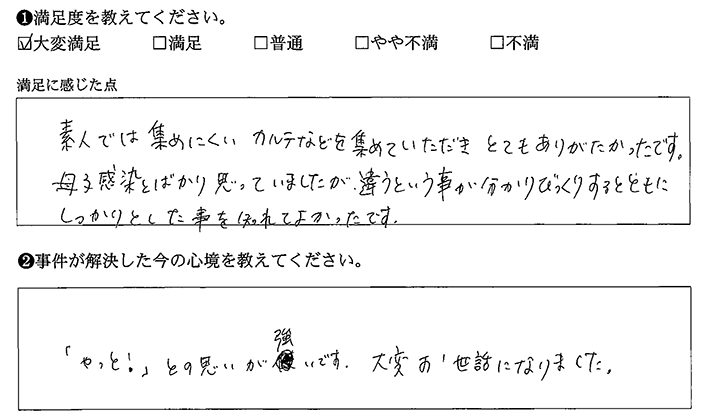 ❶満足度を教えてください。
☑大変満足 □満足 □普通 □やや不満 □不満
満足に感じた点
素人では集めにくい カルテなどを集めていただき とてもありがたかったです。
母子感染とばかり思っていましたが、違うという事が分かりびっくりするとともに
しっかりとした事を知れてよかったです。
❷事件が解決した今の心境を教えてください。
「やっと!」との思いが強いです。大変お世話になりました。